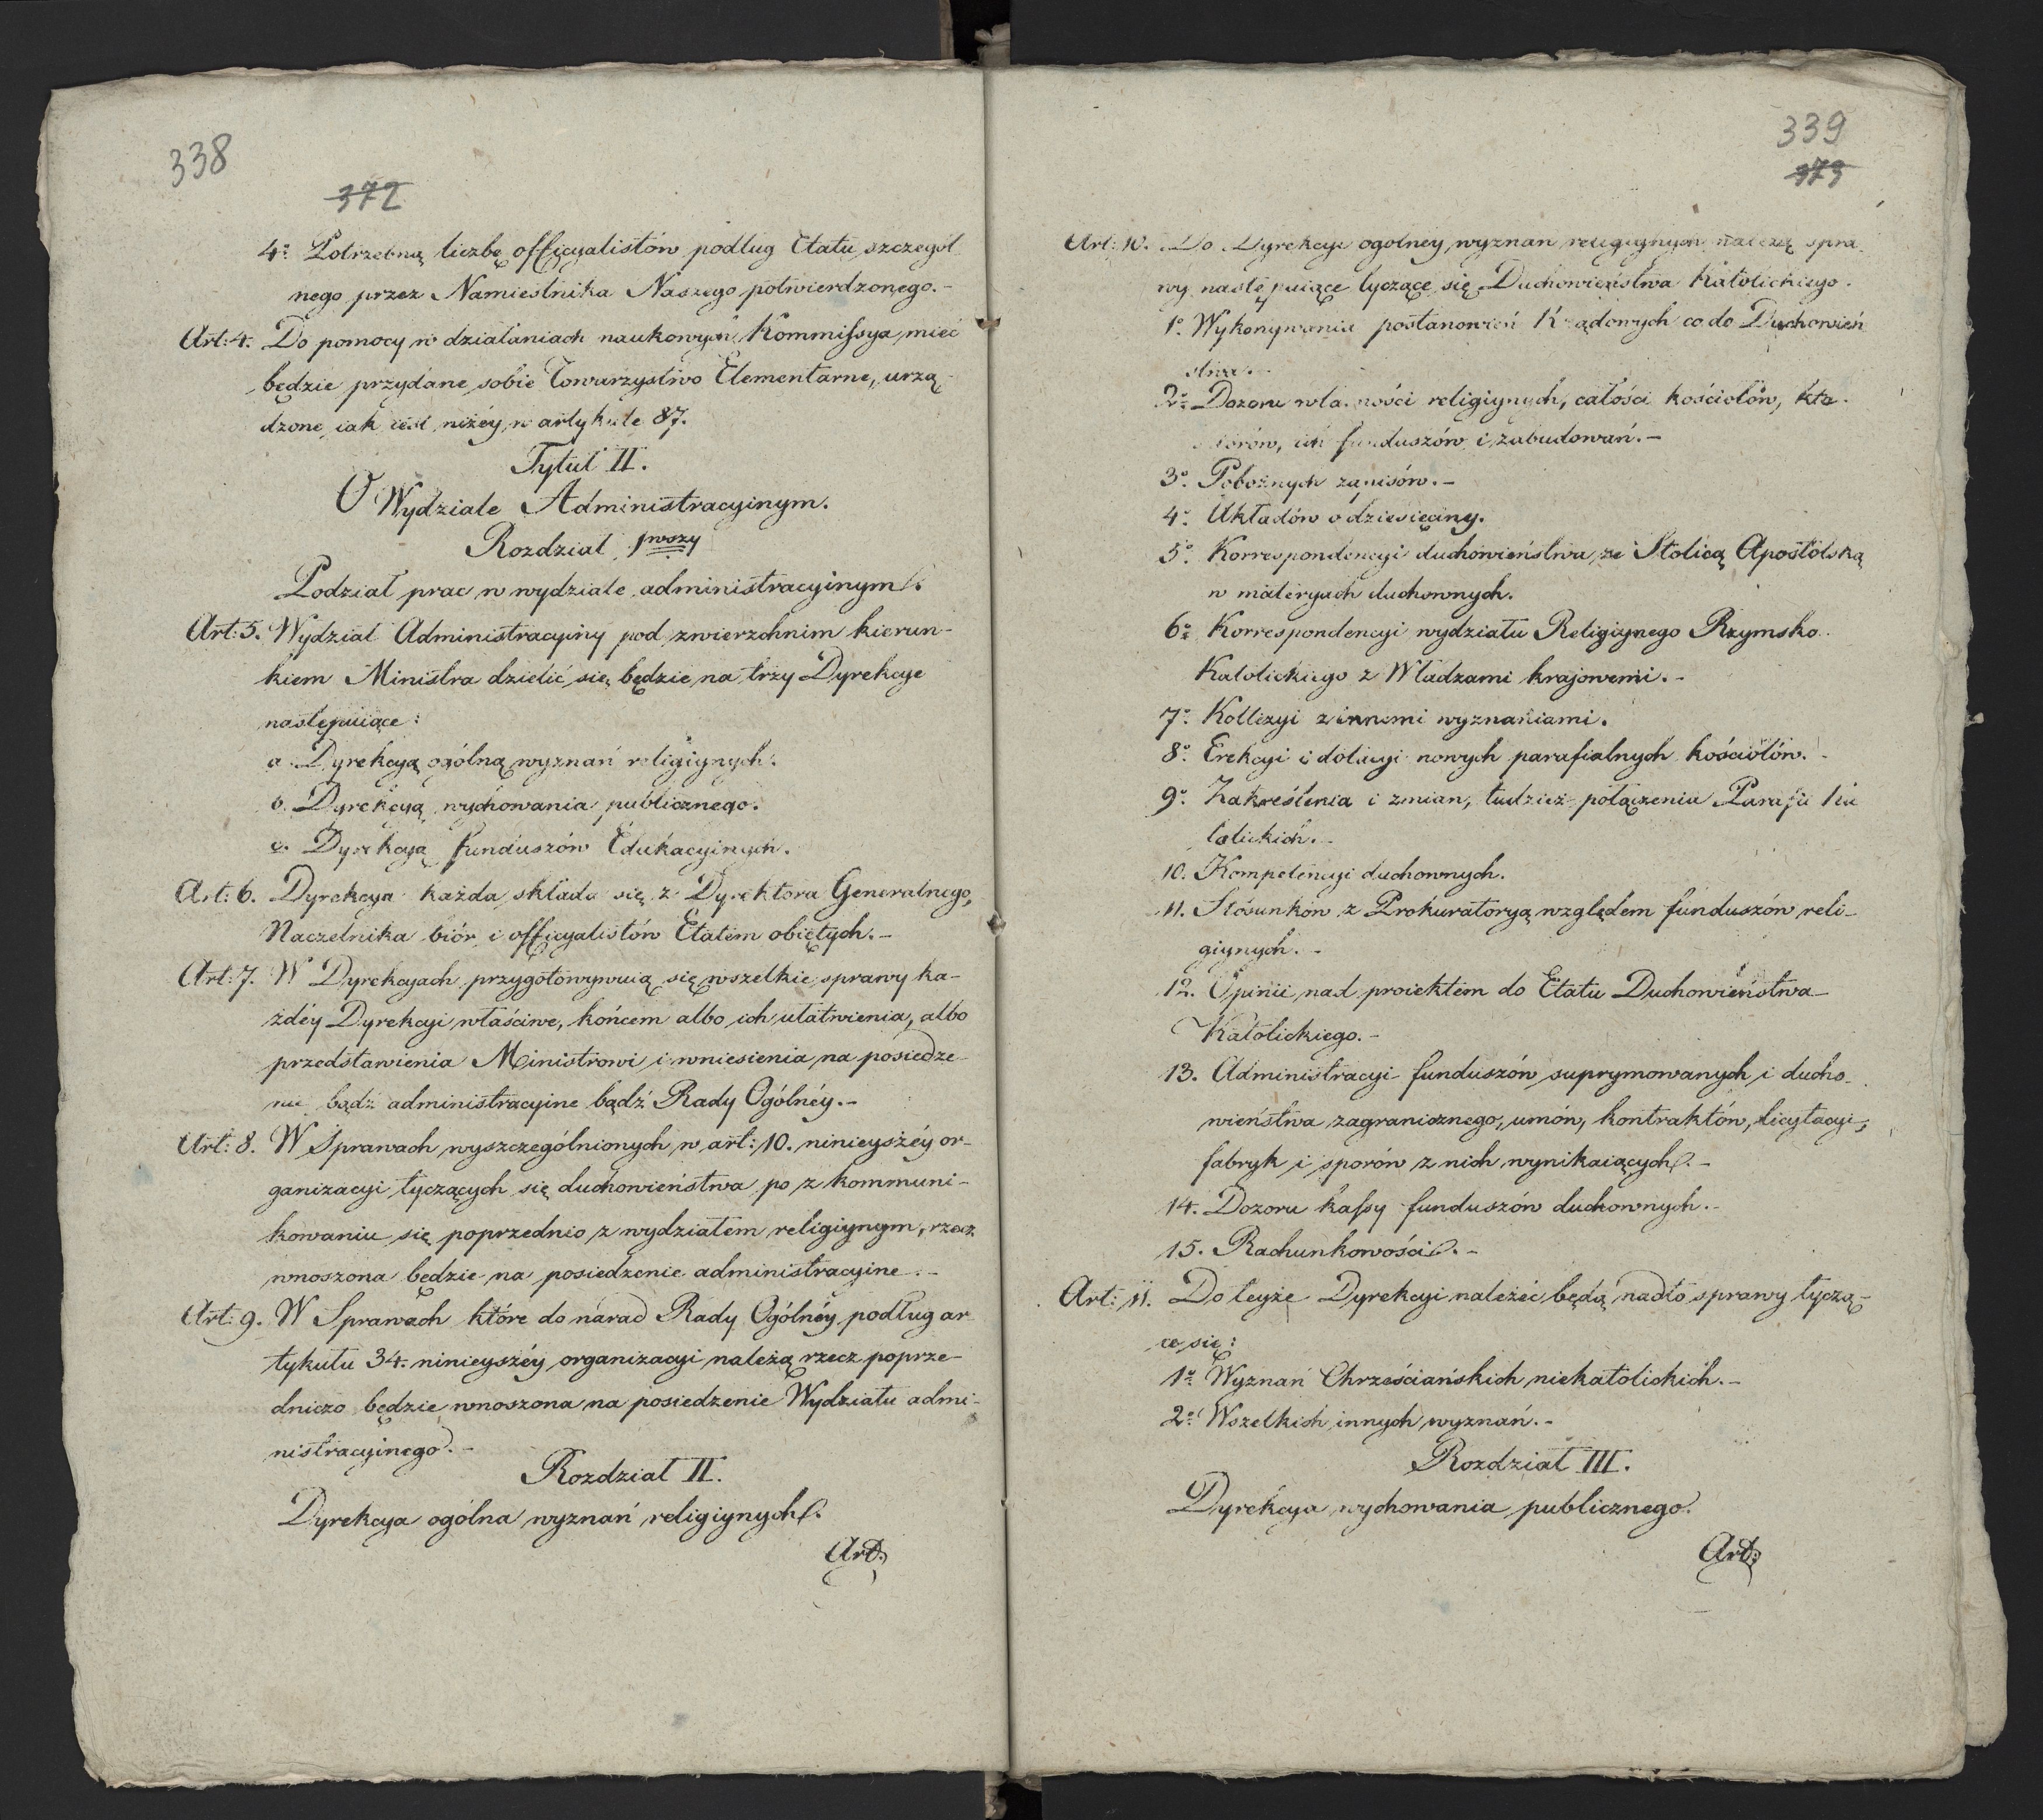 338
372
4º Potrzebną liczbę officyalistów podług Etatu szczegól
nego przez Namiestnika Naszego potwierdzonego.-
Art: 4. Do pomocy w działaniach naukowych Kommissya mieć
będzie przydane sobie Towarzystwo Elementarne, urzą-
dzone iak iest niżéy w artykule 87.
Tytuł II.
O Wydziale Administracyinym.
Rozdział 1wszy
Podział prac w wydziale administracyinym.
Art: 5. Wydział Administracyiny pod zwierzchnim kierun-
kiem Ministra dzielić się będzie na trzy Dyrekcye
następuiące:
a. Dyrekcyą ogólną wyznań religiynych.
b. Dyrekcyą wychowania publicznego.
c. Dyrekcyą funduszów Edukacyinych.
Art: 6. Dyrekcya każda składa się z Dyrektora Generalnego,
Naczelnika biór i officyalistów Etatem obiętych.-
Art: 7. W Dyrekcyach przygotowywuią się wszelkie sprawy ka-
żdéy Dyrekcyi właściwe, końcem albo ich ułatwienia, albo
przedstawienia Ministrowi i wniesienia na posiedze-
nie bądź administracyine bądź Rady Ogólnéy.-
Art: 8. W Sprawach wyszczególnionych w art: 10. ninieyszéy or-
ganizacyi tyczących się duchowieństwa po z kommuni-
kowaniu się poprzednio z wydziałem religiynym, rzecz
wnoszona będzie na posiedzenie administracyine.-
Art: 9. W Sprawach które do narad Rady Ogólnéy podług ar
tykułu 34. ninieyszéy organizacyi należą rzecz poprze-
dniczo będzie wnoszona na posiedzenie Wydziału admi-
nistracyinego.-
Rozdział II.
Dyrekcya ogólna wyznań religiynych.
Art:
339
373
Art: 10. Do Dyrekcyi ogolney wyznan religiynych należą spra
wy następuiące tyczące się Duchowieństwa Katolickiego.
1º. Wykonywania postanowień Rządowych co do Duchowień
stwa.-
2º Dozoru religiynych, całości kościołów, kla-
sztorów, ich funduszów i zabudowań.-
3º. Pobożnych zapisów.-
4º. Układów o dziesięciny.
5º. Korrespondencyi duchowieństwa ze Stolicą Apostolską
w materyach duchownych.
6º Korrespondencyi wydziału Religiynego Rzymsko-
Katolickiego z Władzami krajowemi.-
7º. Kollizyi z innemi wyznaniami.
8º. Erekcyi i dotacyi nowych parafialnych kościołów.-
9º. Zakreślenia i zmian, tudzież połączenia Parafii Ka
tolickich.-
10. Kompetencyi duchownych.
11. Stosunków z Prokuratoryą względem funduszów reli-
giynych.-
12. Opinii nad proiektem do Etatu Duchowieństwa
Katolickiego.-
13. Administracyi funduszów suprymowanych i ducho-
wieństwa zagranicznego, umów, kontraktów, licytacyi,
fabryk i sporów z nich wynikaiących.-
14. Dozoru kassy funduszów duchownych.-
15. Rachunkowości.-
Art: 11. Do teyże Dyrekcyi należeć będą nadto sprawy tyczą-
ce się:
1º Wyznań Chrześciańskich niekatolickich.-
2º. Wszelkich innych wyznań.-
Rozdział III.
Dyrekcya wychowania publicznego.
Art: